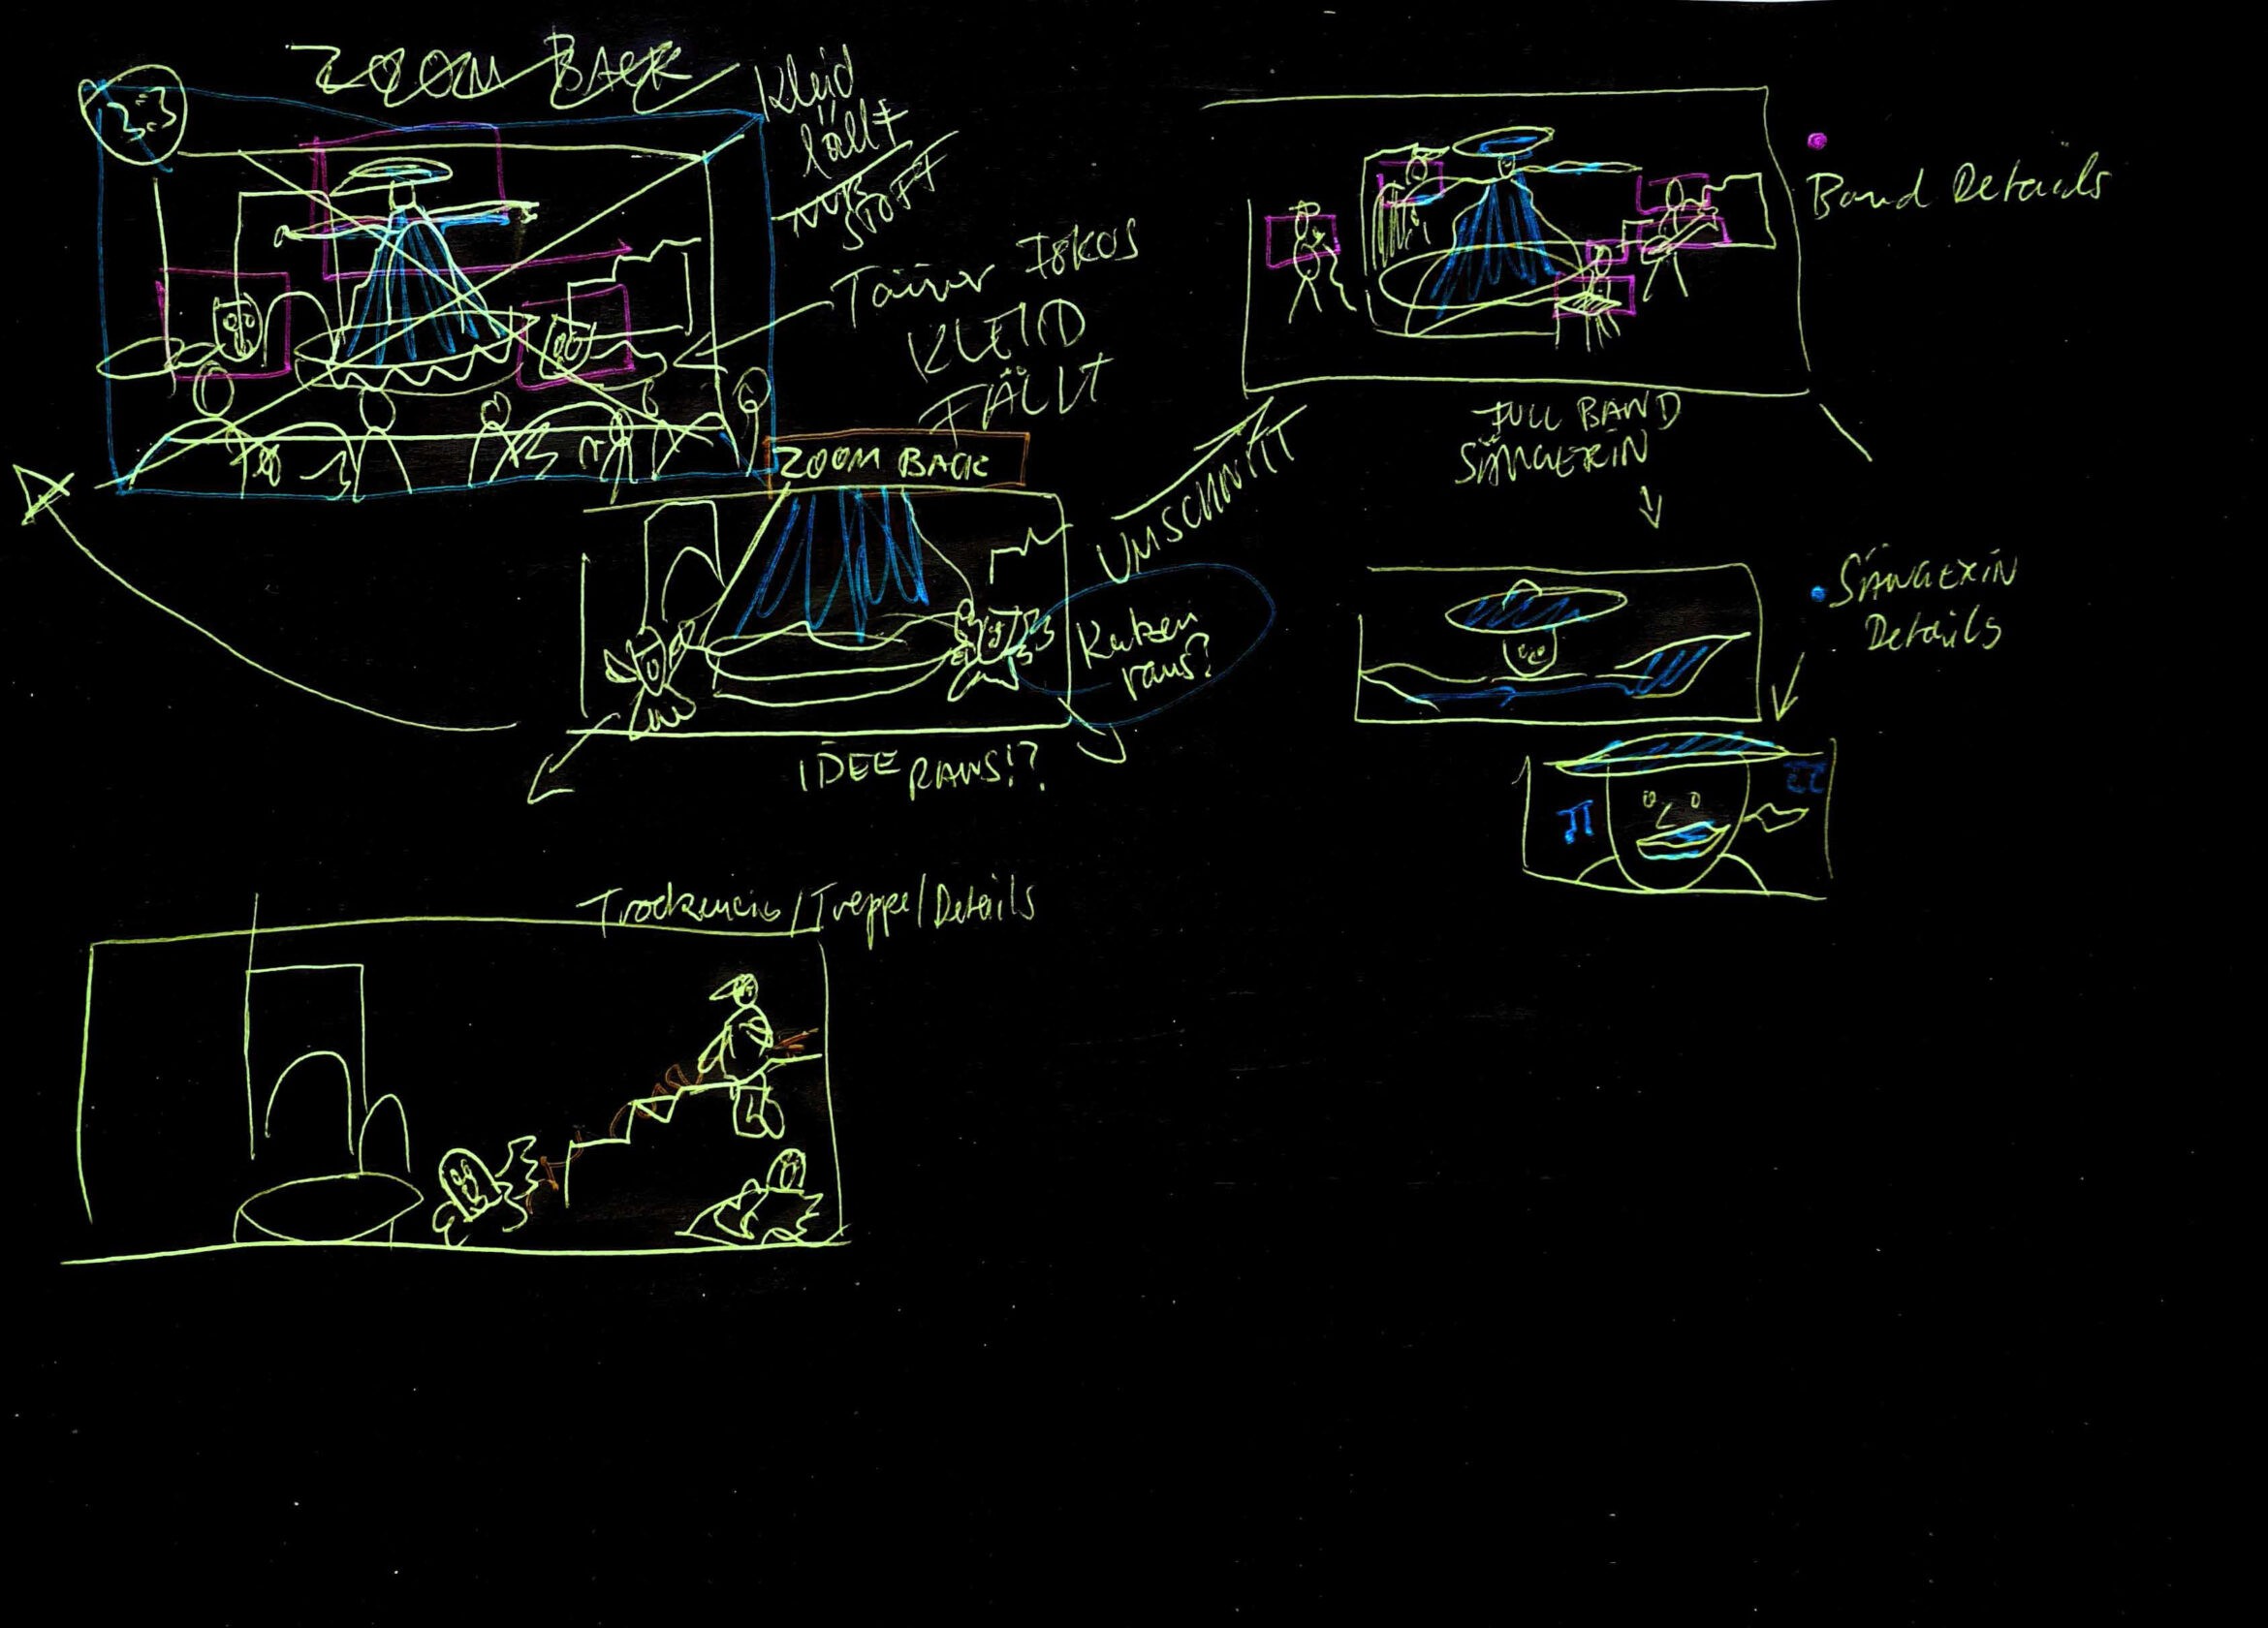 ZOOM BACK
Kleid
fällt
NUR
STOFF
FOKUS
KLEID
FÄLLT
ZOOM BACK
UMSCHNITT
Katzen
raus?
IDEE RAUS!?
Band Details
FULL BAND
SÄNGERIN
SÄNGERIN
Details
Trockeneis/Treppe/Details